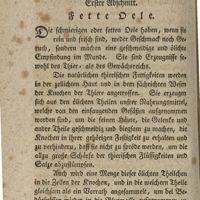 Erster Abschnitt.
Fette Oele.
Die schmierigen oder fetten Oele haben, wenn sie
rein und frisch sind, weder Geschmack noch Ge-
ruch, sondern machen eine geschmeidige und ölichte
Empfindung im Munde. Sie sind Erzeugnisse so-
wohl des Thier- als des Gewächsreiches.
Die natürlichen thierischen Fettigkeiten werden
in der zelichten Haut und in dem fächerichten Wesen
der Knochen der Thiere angetroffen. Sie erzeugen
sich aus den ölichten Theilen unsrer Nahrungsmittel,
welche von den einsaugenden Gefäßen aufgenommen
worden sind, um die festen Häute, die Gelenke und
andre Theile geschmeidig und biegsam zu machen, die
Knochen in ihrer gehörigen Festigkeit zu erhalten und
zu verhindern, daß sie nicht zu spröde werden, um die
allzu große Schärfe der thierischen Flüßigkeiten und
Salze abzustumpfen.
Auch wird eine Menge dieser ölichten Theilchen
in die Zellen der Knochen, und in die weichern Theile
gleichsam als ein Vorrath angesammelt, um bei Be-